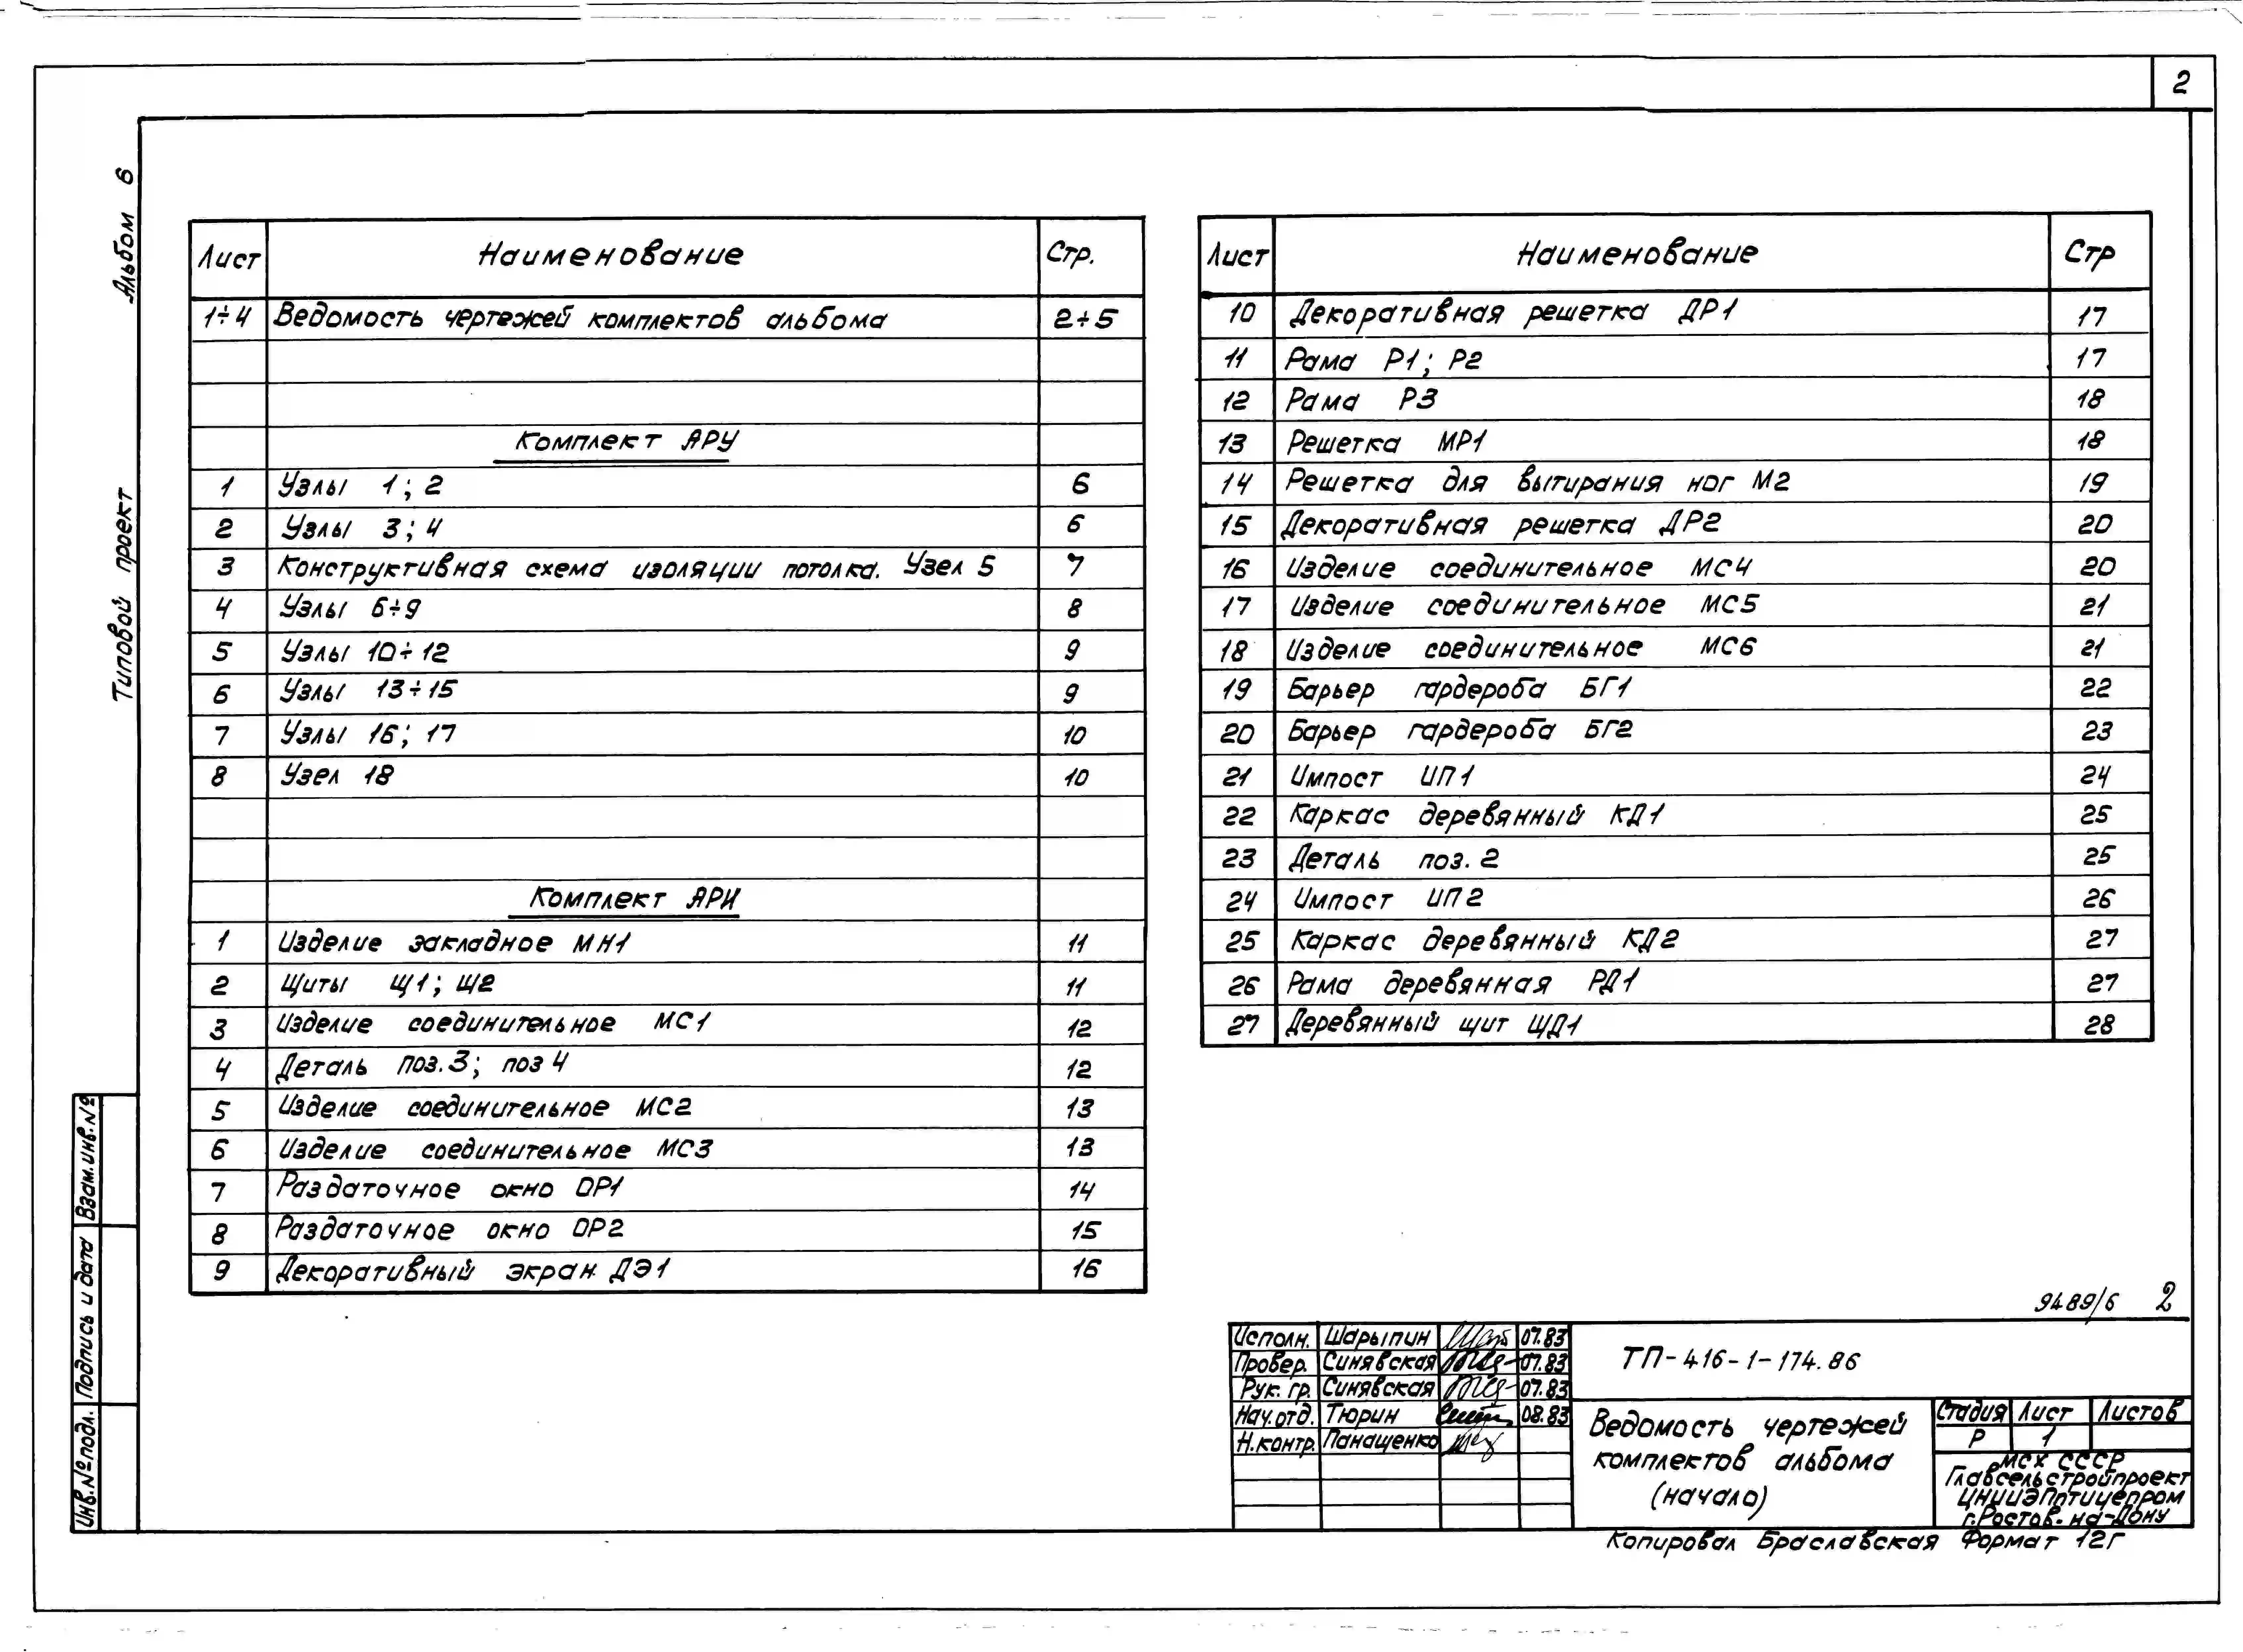 2
Альбом 6
Типовой проект
Лист Наименование Стр.
1÷4 Ведомость чертежей комплектов альбома 2÷5
Комплект АРУ
1 Узлы 1; 2 6
2 Узлы 3; 4 6
3 Конструктивная схема изоляции потолка. Узел 5 7
4 Узлы 6÷9 8
5 Узлы 10÷12 9
6 Узлы 13÷15 9
7 Узлы 16; 17 10
8 Узел 18 10
Комплект АРИ
1 Изделие закладное МН1 11
2 Щиты Щ1; Щ2 11
3 Изделие соединительное МС1 12
4 Деталь поз.3; поз 4 12
5 Изделие соединительное МС2 13
6 Изделие соединительное МС3 13
7 Раздаточное окно ОР1 14
8 Раздаточное окно ОР2 15
9 Декоративный экран ДЭ1 16
Лист Наименование Стр
10 Декоративная решетка ДР1 17
11 Рама Р1; Р2 17
12 Рама Р3 18
13 Решетка МР1 18
14 Решетка для вытирания ног М2 19
15 Декоративная решетка ДР2 20
16 Изделие соединительное МС4 20
17 Изделие соединительное МС5 21
18 Изделие соединительное МС6 21
19 Барьер гардероба БГ1 22
20 Барьер гардероба БГ2 23
21 Импост ИП1 24
22 Каркас деревянный КД1 25
23 Деталь поз. 2 25
24 Импост ИП2 26
25 Каркас деревянный КД2 27
26 Рама деревянная РД1 27
27 Деревянный щит ЩД1 28
Инв.№подл. Подпись и дата Взам.инв.№
9489/6 2
Исполн. Шарыпин 07.83
Провер. Синявская 07.83
Рук. гр. Синявская 07.83
Нач.отд. Тюрин 08.83
Н.контр. Панащенко
ТП-416-1-174.86
Ведомость чертежей
комплектов альбома
(начало)
Стадия Лист Листов
Р 1
МСХ СССР
Главсельстройпроект
ЦНИИЭПптицепром
г.Ростов-на-Дону
Копировал Браславская Формат 12г